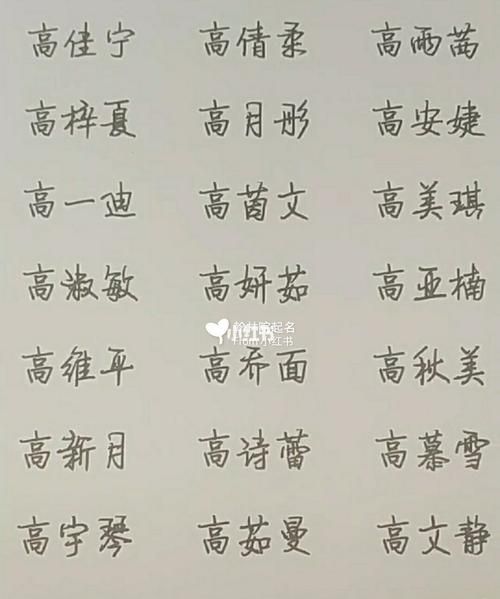 高佳宁 高倩柔 高雨茜
高梓夏 高月彤 高安婕
高一迪 高茵文 高美琪
高淑敏 高妍茹 高亚楠
小红书
起名
From小红书
高维平 高乔面 高秋美
高新月 高诗蕾 高慕雪
高宇琴 高茹曼 高文静